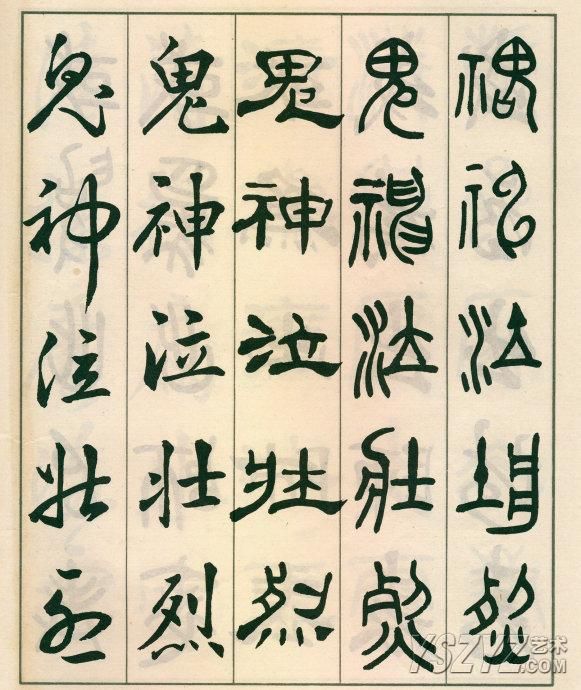 鬼神泣壮烈
鬼神泣壮烈
鬼神泣壮烈
鬼神泣壮烈
鬼神泣壮烈
YSZYZ艺术.COM